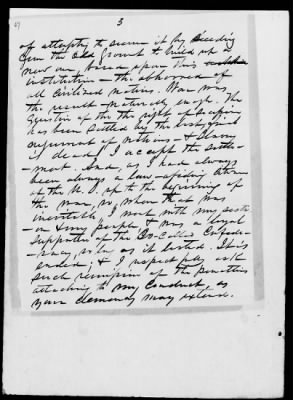 3
of attempting to secure it by seceding
from the old ground & build up a
new one, based upon this
institution — the abhorred of
all civilized nations. War was
the result — naturally enough. The
question of the right of secession
has been settled by the
argument of nations — & slavery
is dead. I accept the settle-
-ment. And, as I had always
been always a law-abiding citizen
of the U. S. up to the beginning of
the war, so, when that was
inevitable, I went with my section
on & my people & was a loyal
supporter of the so-called Confede-
-racy, as long as it lasted. It is
ended; & I respectfully ask
such remission of the penalties
attaching to my conduct, as
your clemency may extend.